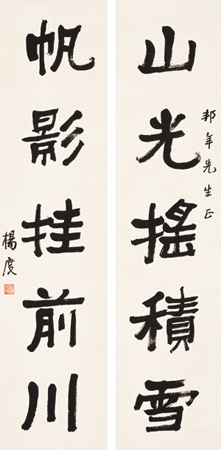 山光搖積雪
邦年先生正
帆影挂前川
楊度